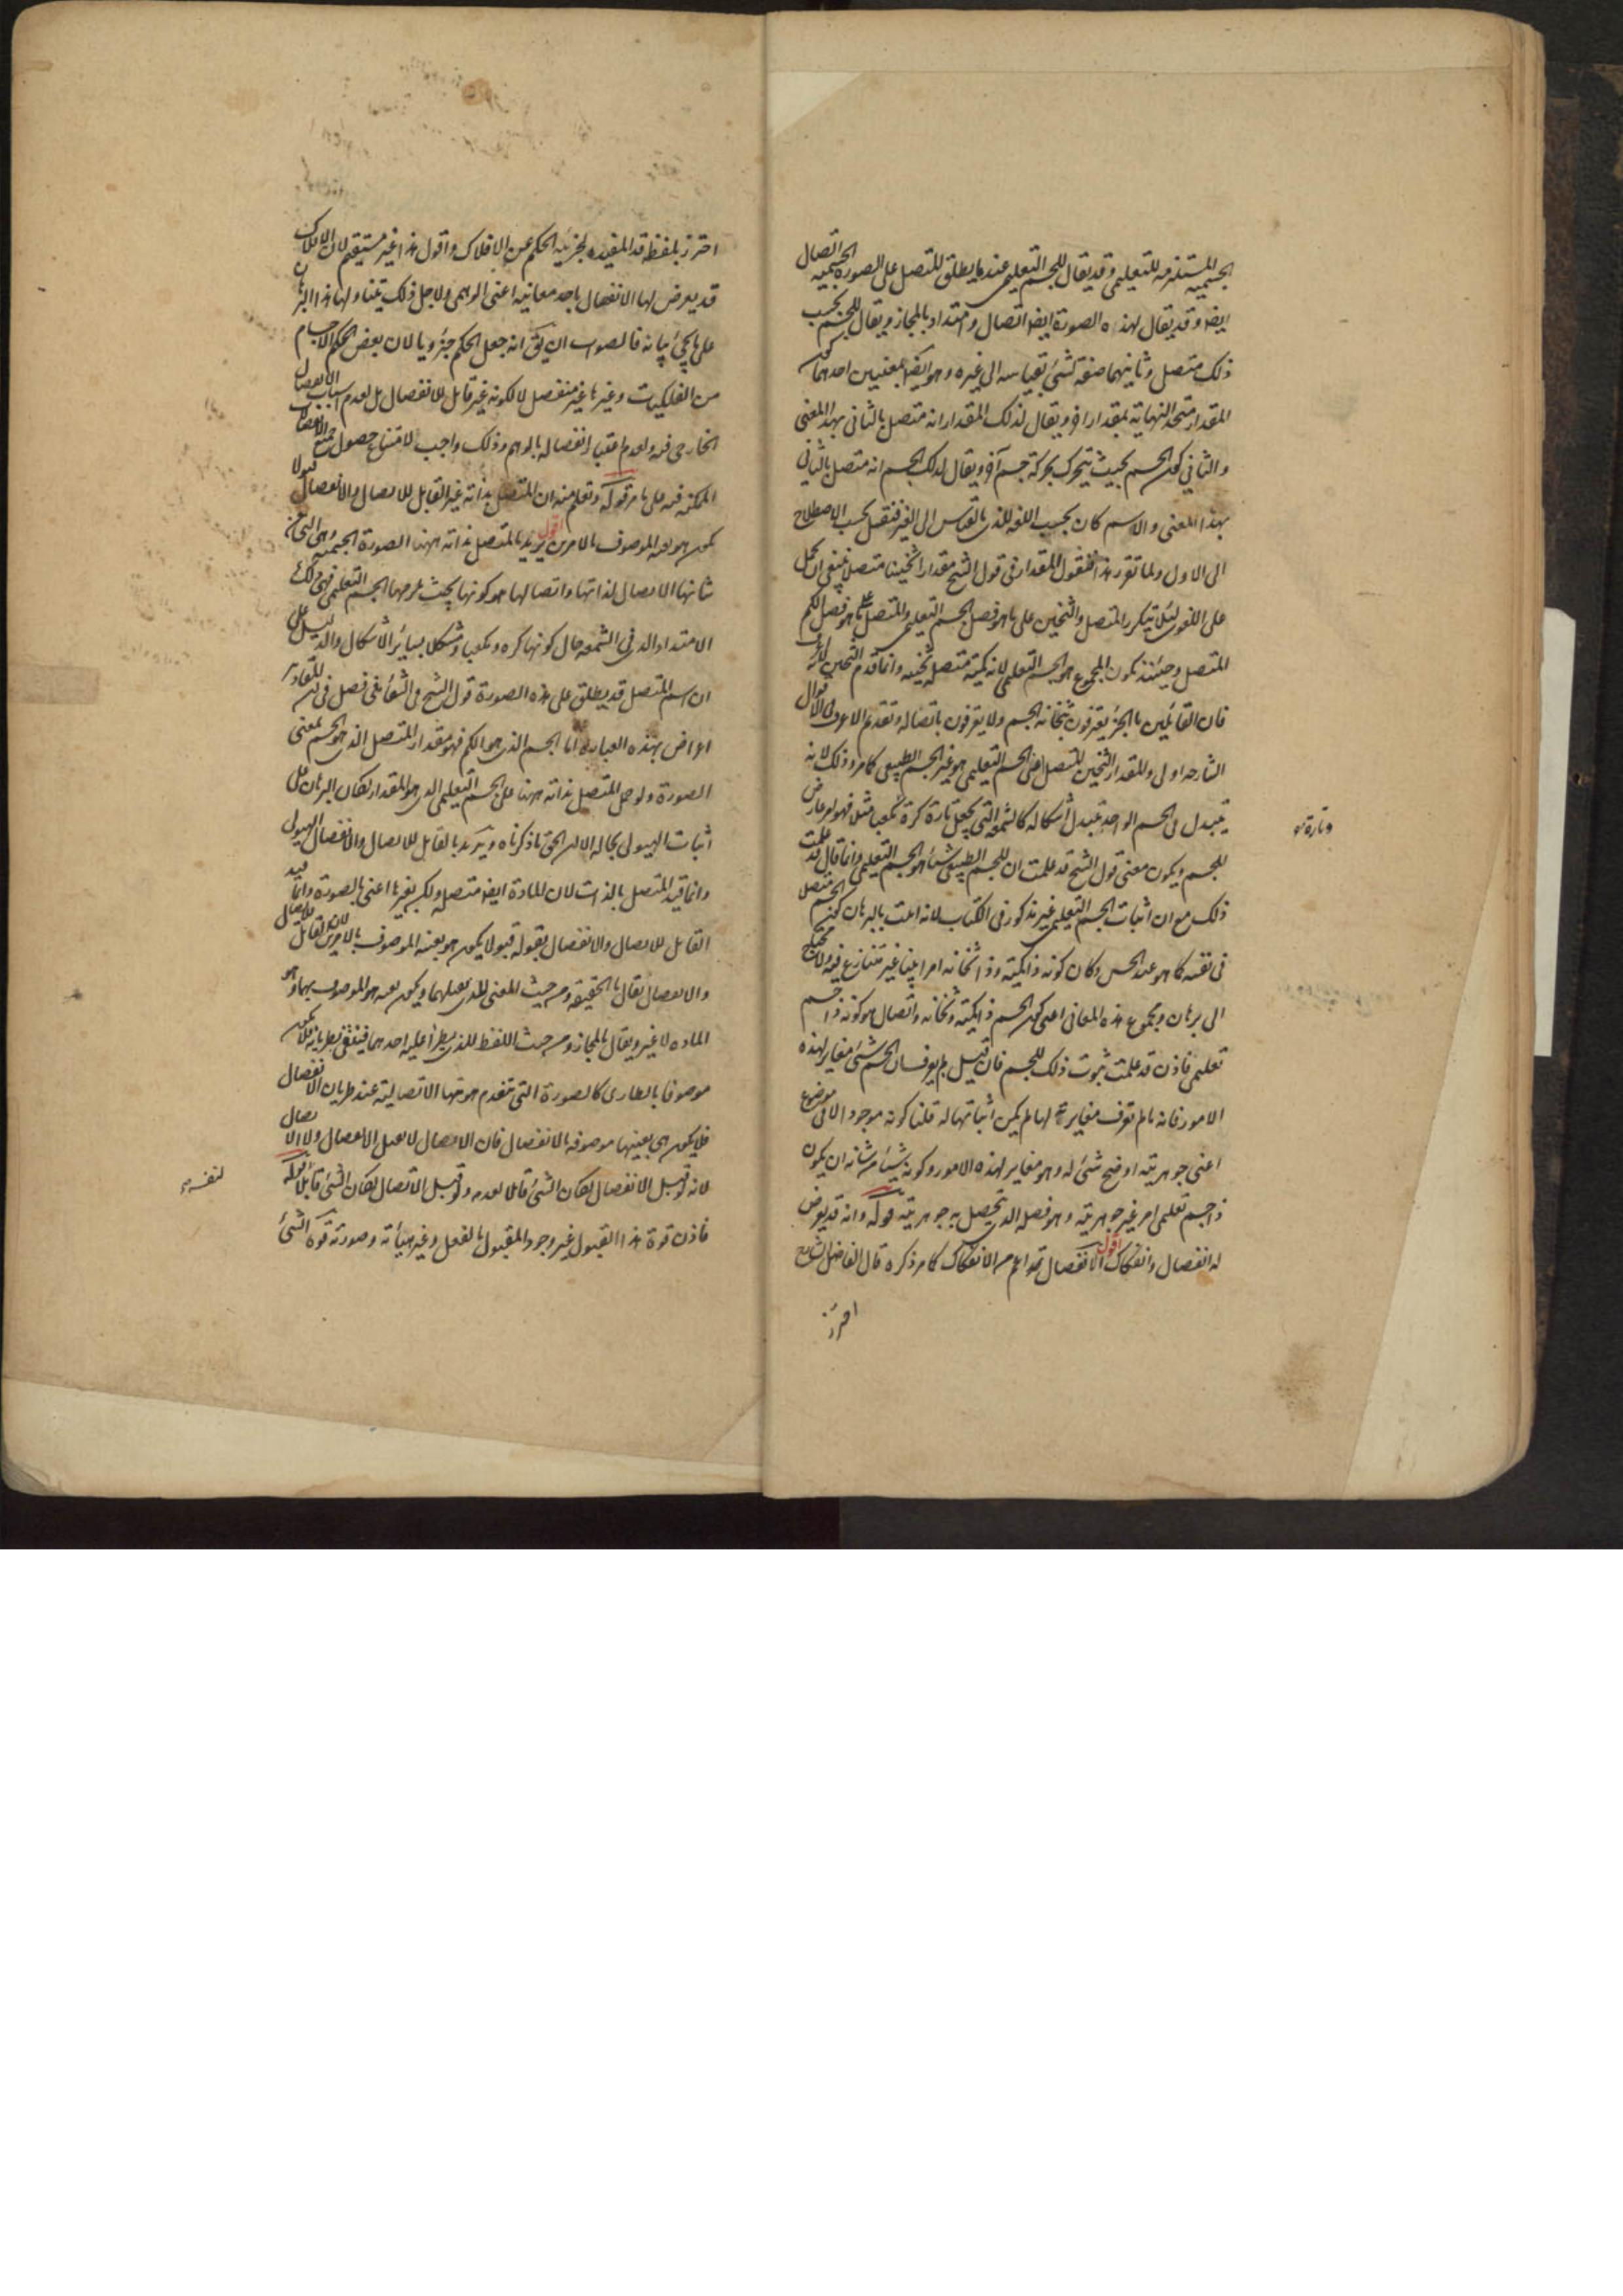 الجسمية المستلزمة للتعليمى وقد يقال للجسم التعليمى عندما يطلق المتصل على الصورة الجسمية اتصال
ايضا وقد يقال لهذه الصورة ايضا اتصال وامتداد بالمجاز ويقال للجسم بحسب
ذلك متصل وثانيهما صفة لشئ بقياسه الى غيره وهو ايضا بمعنيين احدهما كون
المقدار متحد النهاية بمقدار اخر ويقال لذلك المقدار انه متصل بالثانى بهذا المعنى
والثانى كون الجسم بحيث يتحرك بحركة جسم آخر ويقال لذلك الجسم انه متصل بالثانى
بهذا المعنى والاسم كان بحسب اللغة للذى بالقياس الى الغير فنقل بحسب الاصطلاح
الى الاول ولما تقرر هذا فنقول المقدار فى قول الشيخ مقدارا ثخينا متصلا ينبغى ان يحمل
على اللغوى لئلا يتكرر المتصل والثخين على ما هو فصل الجسم التعليمى والمتصل على ما هو فصل الكم
المتصل وحينئذ يكون المجموع هو الجسم التعليمى لانه كمية متصلة ثخينة وانما قدم الثخين لانه اعرف
فان القائلين بالجزء يعترفون بثخانة الجسم ولا يعترفون باتصاله وتقديم الاعرف فى الاقوال
الشارحة اولى والمقدار الثخين المتصل اعنى الجسم التعليمى هو غير الجسم الطبيعى كما مر وذلك لانه
يتبدل فى الجسم الواحد بتبدل اشكاله كالشمعة التى تجعل تارة كرة مكعبا مثلا فهو امر عارض
وتارة
للجسم ويكون معنى قول الشيخ قد علمت ان للجسم الطبيعى شيئا هو الجسم التعليمى وانما قال قد علمت
ذلك مع ان اثبات الجسم التعليمى غير مذكور فى الكتاب لانه اثبت بالبرهان كون الجسم متصل
فى نفسه كما هو عند الحس وكان كونه ذا كمية وذا ثخانة امرا بينا غير متنازع فيه ولا محتاج
الى برهان ومجموع هذه المعانى اعنى كون الجسم ذا كمية وثخانة واتصال هو كونه ذا جسم
تعليمى فاذن قد علمت ثبوت ذلك للجسم فان قيل لم يعرف ان الجسم شئ مغاير لهذه
الامور فانه ما لم تعرف مغايرته لها لم يمكن اثباتها له قلنا كونه موجود الا فى موضوع
اعنى جوهريته اوضح شئ له وهو مغاير لهذه الامور وكونه شيئا من شانه ان يكون
ذا جسم تعليمى امر غير جوهريته وهو فصله الذى تحصل به جوهريته قوله وانه قد يعرض
له انفصال وانفكاك اقول الانفصال اعم من الانفكاك كما مر ذكره قال الفاضل الشارح
احترز
احترز بلفظة قد المفيدة لجزئية الحكم عن الافلاك واقول هذا غير مستقيم لان الافلاك
قد يعرض لها الانفصال باحد معانيه اعنى الوهمى ولاجل ذلك يتناولها هذا البرهان
على ما يجئ بيانه فالصواب ان يقال انه جعل الحكم جزويا لان بعض الاجسام
من الفلكيات وغيرها غير منفصل لا لكونه غير قابل للانفصال بل لعدم اسباب الانفصال
الخارجى فيه ولعدم اعتبار انفصاله بالوهم وذلك واجب لامتناع حصول جميع الانفصالات
الممكنة فيه على ما مر قوله وتعلم منه ان المتصل بذاته غير القابل للاتصال والانفصال قبولا
يكون هو بعينه الموصوف بالامرين اقول يريد بالمتصل بذاته ههنا الصورة الجسمية وهى التى من
شانها الاتصال لذاتها واتصالها هو كونها بحيث يلزمها الجسم التعليمى فهى ذلك
الامتداد الذى فى الشمعة حال كونها كرة ومكعبا ومشكلا بسائر الاشكال والدليل على
ان اسم المتصل قد يطلق على هذه الصورة قول الشيخ فى الشفا فى فصل فى ان المقادير
اعراض بهذه العبارة اما الجسم الذى هو الكم فهو مقدار المتصل الذى هو الجسم بمعنى
الصورة ولو حمل المتصل بذاته ههنا على الجسم التعليمى الذى هو المقدار لكان البرهان على
اثبات الهيولى بحاله الا ان الحق ما ذكرناه ويريد بالقابل للاتصال والانفصال الهيولى
وانما قيد المتصل بالذات لان المادة ايضا متصلة ولكن بغيرها اعنى بالصورة وانما قيد
القابل للاتصال والانفصال بقوله قبولا يكون هو بعينه الموصوف بالامرين لان القابل للاتصال
والانفصال يقال بالحقيقة ومن حيث المعنى للذى يقبلهما ويكون بعينه هو الموصوف بهما وهو
المادة لا غير ويقال بالمجاز ومن حيث اللفظ للذى يطرأ عليه احدهما فينتفى بطريانه فلا يكون
موصوفا بالطارى كالصورة التى تنعدم هويتها الاتصالية عند طريان الانفصال
فلا يكون هى بعينها موصوفة بالانفصال فان الاتصال لا يقبل الانفصال ولا الاتصال
لانه لو قبل الانفصال لكان الشئ قابلا لعدمه ولو قبل الاتصال لكان الشئ قابلا قوله
لنفسه
فاذن قوة هذا القبول غير وجود المقبول بالفعل وغير هيأته وصورته قوة الشئ